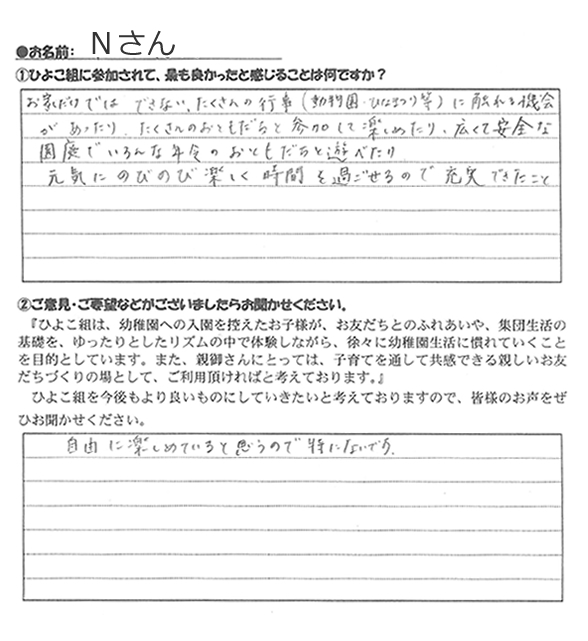 ●お名前: Nさん
①ひよこ組に参加されて、最も良かったと感じることは何ですか?
お家だけでは できない、たくさんの行事(動物園・ひなまつり等)に触れる機会
があったり、たくさんのおともだちと参加して楽しめたり、広くて安全な
園庭でいろんな年令のおともだちと遊べたり
元気にのびのび楽しく時間を過ごせるので充実できたこと
②ご意見・ご要望などがございましたらお聞かせください。
『ひよこ組は、幼稚園への入園を控えたお子様が、お友だちとのふれあいや、集団生活の
基礎を、ゆったりとしたリズムの中で体験しながら、徐々に幼稚園生活に慣れていくこと
を目的としています。また、親御さんにとっては、子育てを通して共感できる親しいお友
だちづくりの場として、ご利用頂ければと考えております。』
ひよこ組を今後もより良いものにしていきたいと考えておりますので、皆様のお声をぜ
ひお聞かせください。
自由に楽しめていると思うので特にないです。